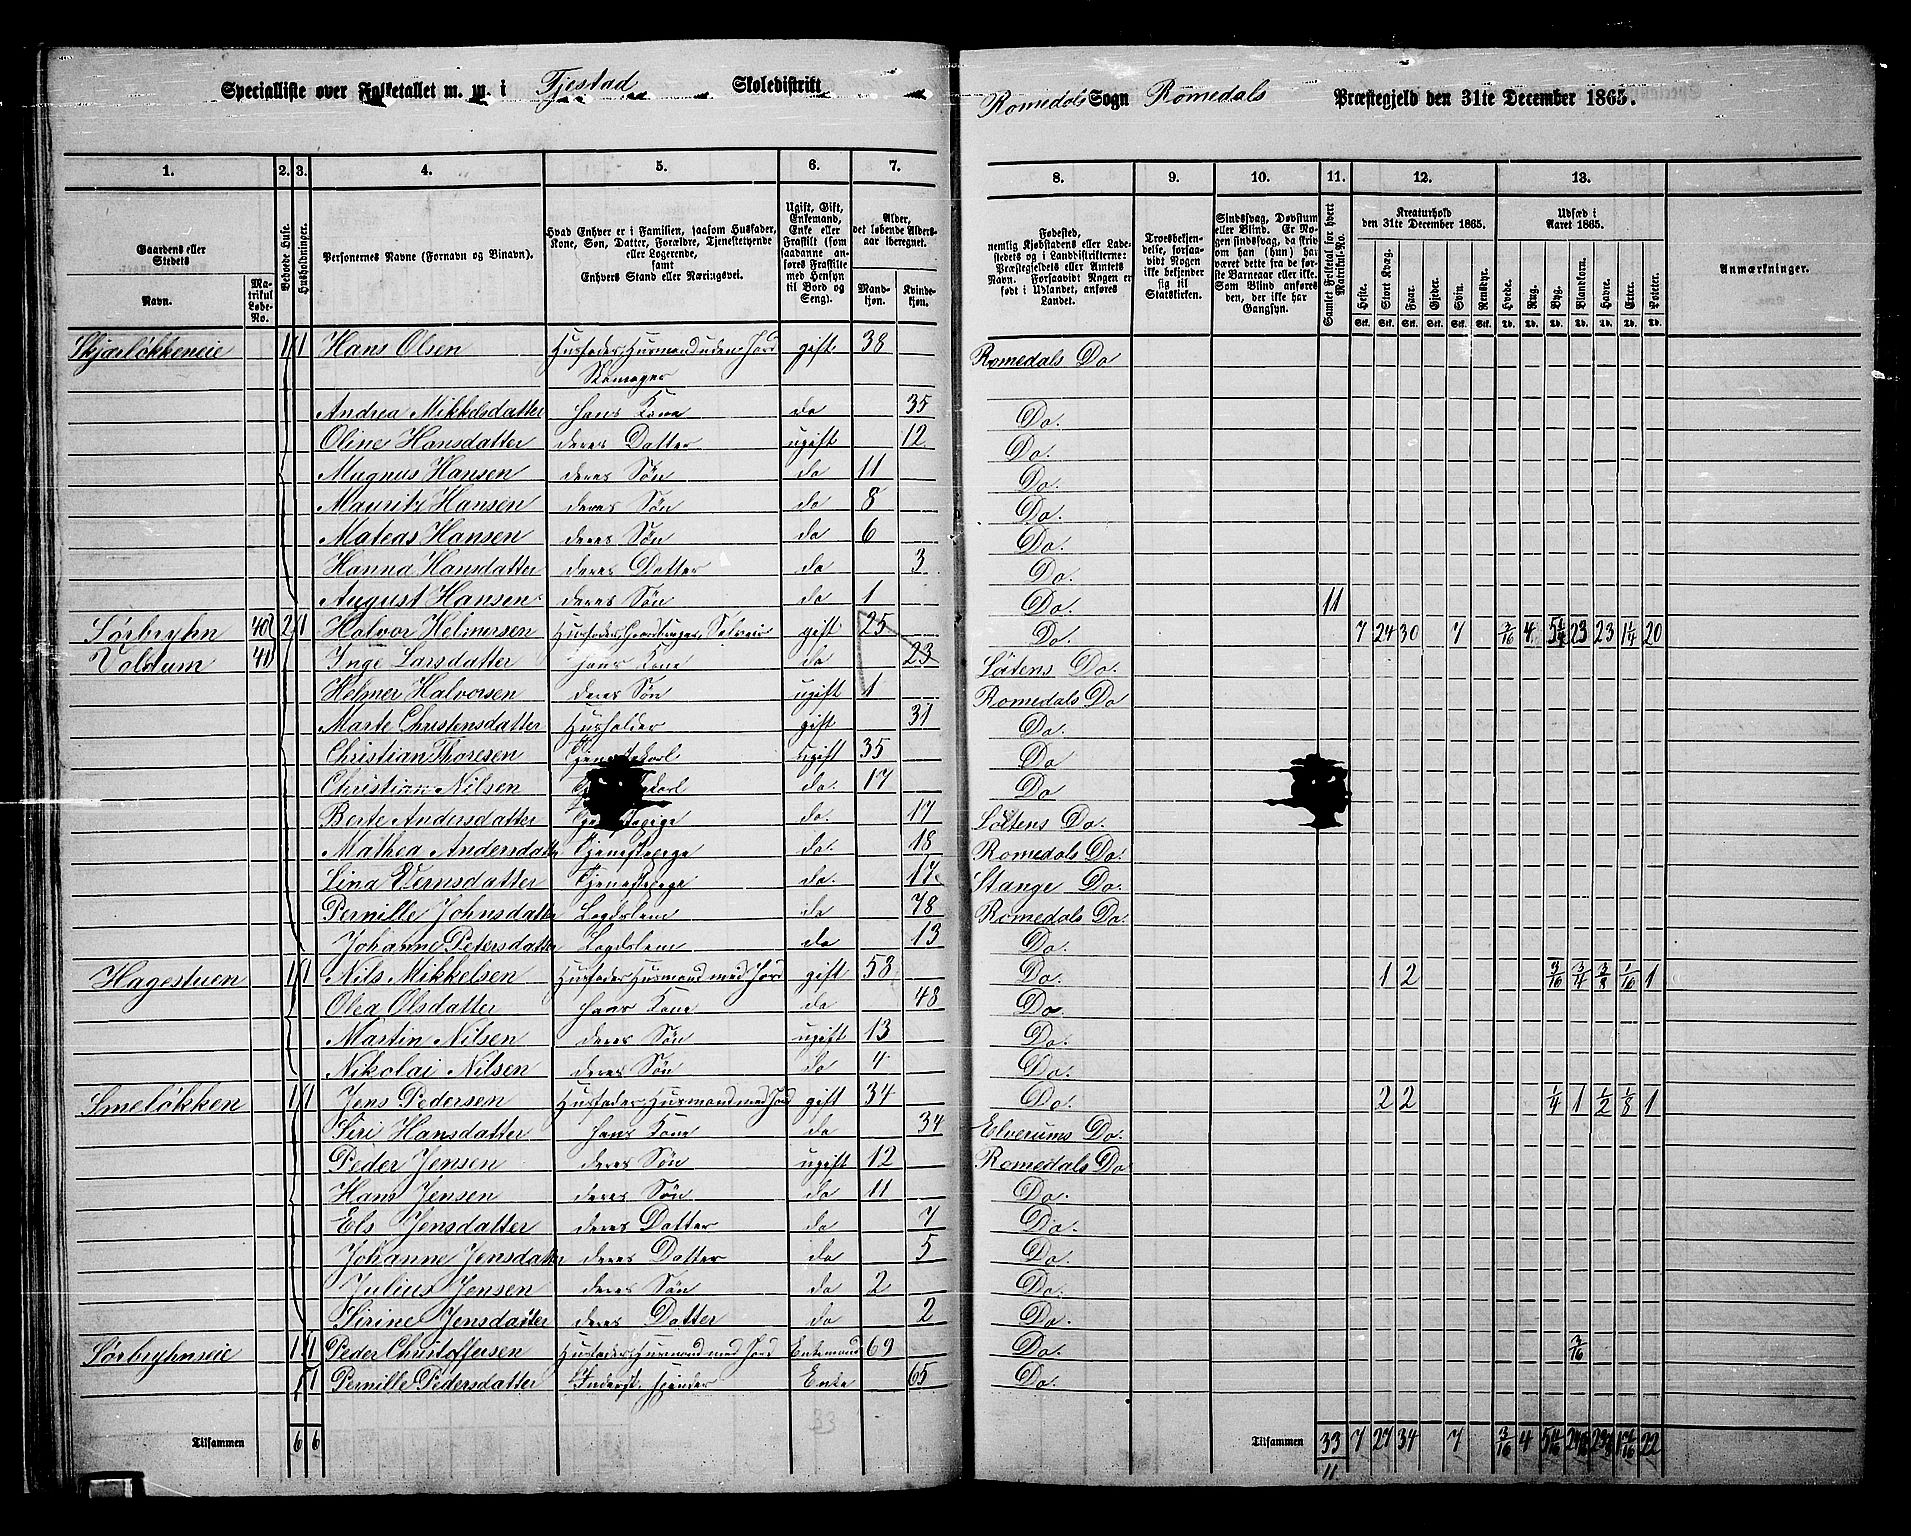 Specialliste over Folketallet m. m. i Tjestad Skoledistrikt
Romedals Sogn Romedals Præstegjeld den 31te December 1865.
1. 2. 3. 4. 5. 6. 7. 8. 9. 10. 11. 12. 13.
Gaardens eller Stedets Navn. Matrikul Løbe-No. Beboede Huse. Husholdninger. Personernes Navne (Fornavn og Binavn). Hvad Enhver er i Familien, saasom Husfader, Kone, Søn, Datter, Forældre, Tjenestetyende eller Logerende, samt Enhvers Stand eller Næringsvei. Ugift, Gift, Enkemand, Enke eller Fraskilt (som saadanne anføres Fraskilte med Hensyn til Bord og Seng). Alder, det løbende Aldersaar iberegnet. Mandkjøn. Kvindekjøn.
Fødested, nemlig Kjøbstadens eller Ladestedets og i Landdistrikterne: Præstegjeldets eller Amtets Navn. Forsaavidt Nogen er født i Udlandet, anføres Landet. Troesbekjendelse, forsaavidt Nogen ikke bekjender sig til Statskirken. Sindssvag, Døvstum eller Blind. Er Nogen sindssvag, da skriv om han (hun) har været dette fra de første Barneaar eller ikke. Som Blind anføres den, der ikke har Gangsyn. Samlet Folketal for hvert Matrikul-No. Kreaturhold den 31te December 1865. Heste. Stort Kvæg. Faar. Gjeder. Svin. Rensdyr. Udsæd i Aaret 1865. Hvede. Rug. Byg. Blandkorn. Havre. Erter. Poteter. Anmærkninger.
Skjærløkkeneie 1 1 Hans Olsen Husfader, Husmand uden Jord gift 38 Romedals Do
Skomager
Andrea Mikkelsdatter hans Kone do 35 Do.
Oline Hansdatter deres Datter ugift 12 Do.
Magnus Hansen deres Søn do 11 Do.
Mauritz Hansen deres Søn do 8 Do.
Mateas Hansen deres Søn do 6 Do.
Hanna Hansdatter deres Datter do 3 Do.
August Hansen deres Søn do 1 Do. 11
Sørbryhn 40 2 1 Halvor Helmersen Husfader, Gaardbruger, Selveier gift 25 Do. 7 24 30 7 3/16 4 23 23 1 1/4 20
Voldum 41 Inge Larsdatter hans Kone do 23 Löitens Do.
Helmer Halvorsen deres Søn ugift 1 Romedals Do
Marte Christensdatter Husholder gift 31 Do.
Christian Thoresen Tjenestekarl ugift 35 Do
Christian Nilsen do. 17 Do
Berte Andersdatter do. 17 Löitens Do.
Mathea Andersdatter Tjenestepige do. 18 Romedals Do.
Lina Evensdatter Tjenestepige do. 17 Stange Do.
Pernille Johnsdatter Lægdslem do 78 Romedals Do.
Johanne Petersdatter Lægdslem do 13 Do.
Hagestuen 1 1 Nils Mikkelsen Husfader, Husmand med Jord gift 58 Do. 1 2 3/16 3/4 1/16 1
Olea Olsdatter hans Kone do 48 Do.
Martin Nilsen deres Søn ugift 13 Do.
Nikolai Nilsen deres Søn do 4 Do.
Smeløkken 1 1 Jens Pedersen Husfader, Husmand med Jord gift 34 Do. 2 2 1/4 1 1/2 1/8 1
Siri Hansdatter hans Kone do 34 Elverums Do.
Peder Jensen deres Søn ugift 12 Romedals Do
Hans Jensen deres Søn do 11 Do.
Els Jensdatter deres Datter do 7 Do.
Johanne Jensdatter deres Datter do 5 Do.
Julius Jensen deres Søn do 2 Do.
Sirine Jensdatter deres Datter do 2 Do.
Sørbryhnseie 1 1 Peder Christoffersen Husfader, Husmand med Jord Enkemand 69 Do. 3/16
1 Pernille Pedersdatter Inderst Enke 65 Do.
33
Tilsammen 6 6
Tilsammen 33 7 27 34 7 3/16 4 22
11